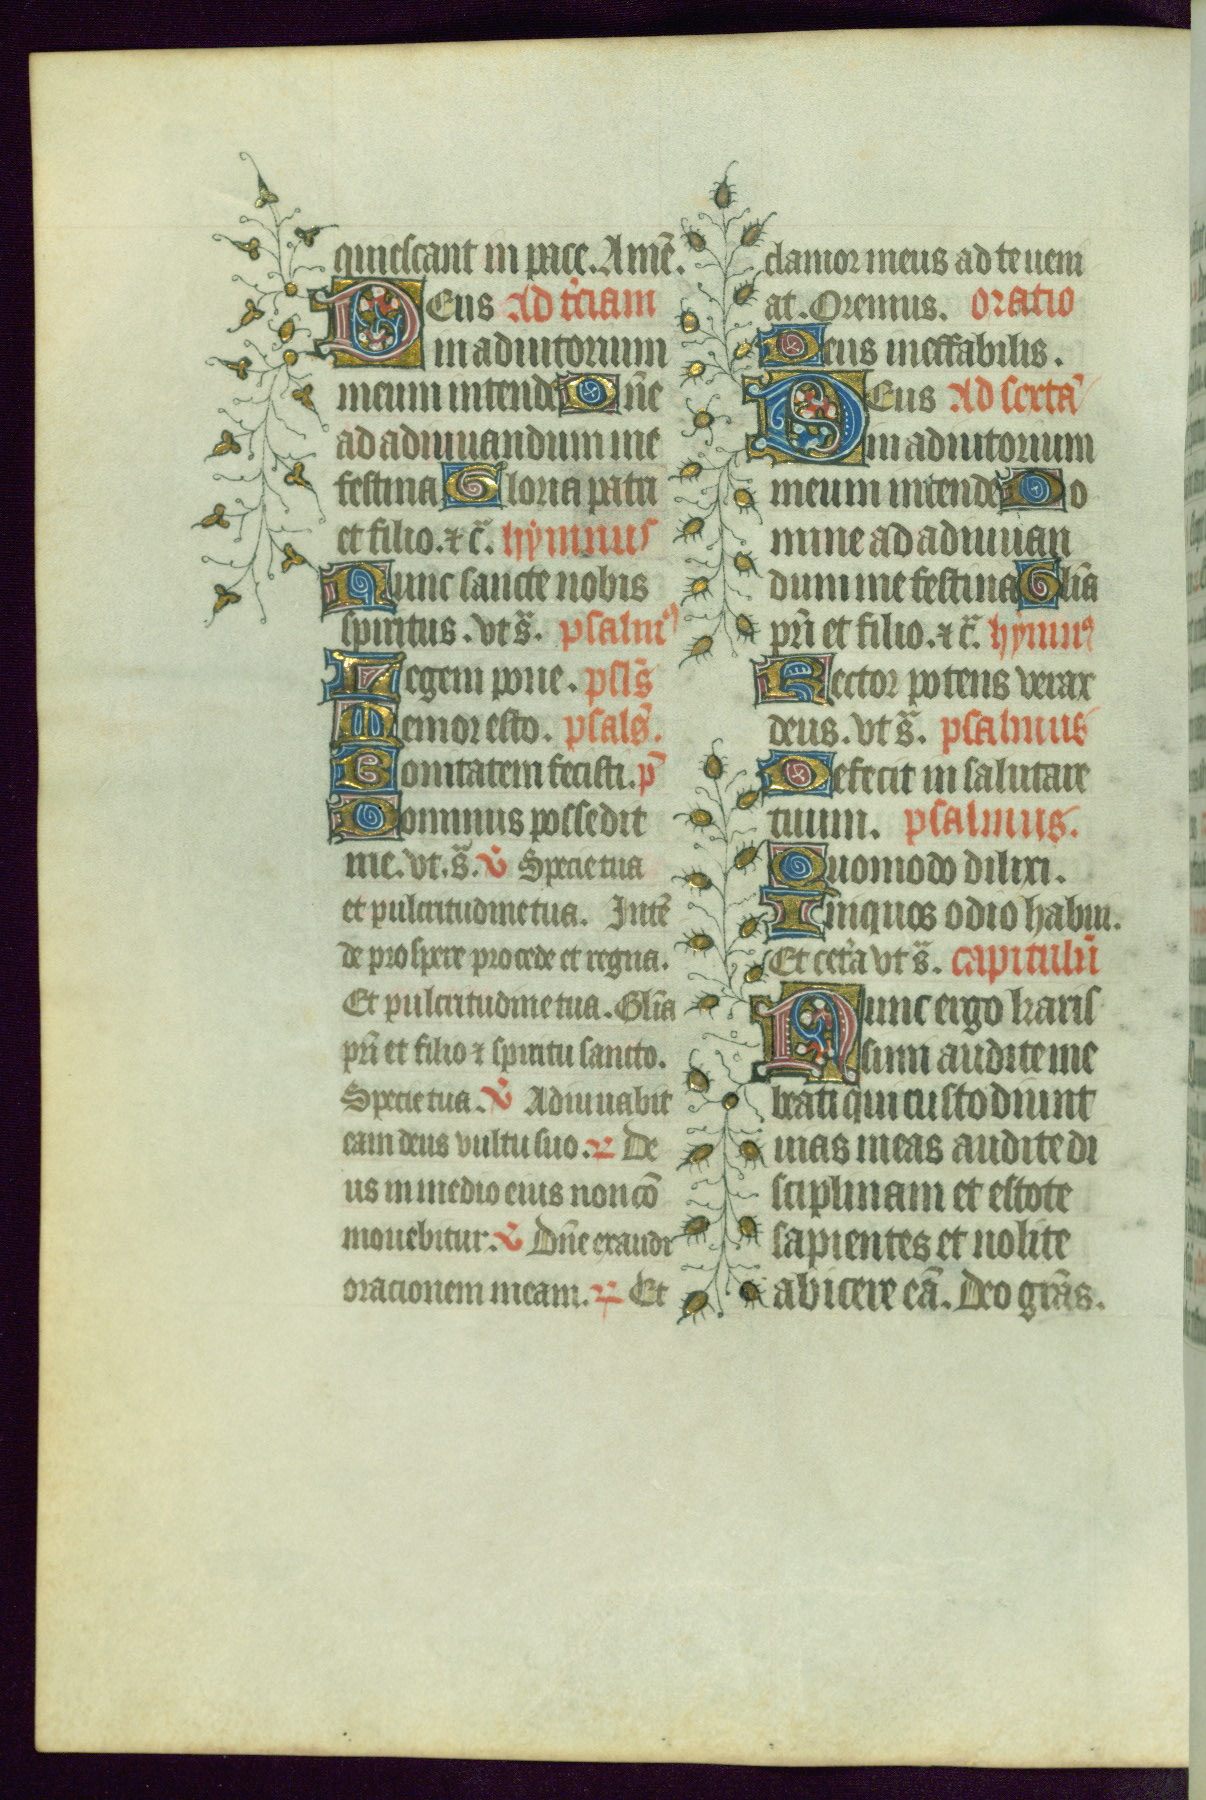 quiescant in pace. Amē.
Deus Ad t'ciam
in adiutorium
meum intende Dn̄e
ad adiuuandum me
festina Gloria patri
et filio. ⁊ c̄. hẏmnus
Nunc sancte nobis
spiritus. vt s̄. psalmꝰ
Legem pone. psl̄s
Memor esto. psals̄.
Bonitatem fecisti. p̄
Dominus possedit
me. vt. s̄. ℣ Specie tua
et pulcritudine tua. Intē
de prospere procede et regna.
Et pulcritudine tua. Gl̄ia
pr̄i et filio ⁊ spiritu sancto.
Specie tua. ℣ Adiuuabit
eam deus vultu suo. ℟ De
us in medio eius non cō
mouebitur. ℣ Dn̄e exaudi
orationem meam. ℟ Et
clamor meus ad te ueni
at. Oremus. Oratio
Deus ineffabilis.
Deus Ad sextā
in adiutorium
meum intende Do
mine ad adiuuan
dum me festina Gl̄ia
pr̄i et filio. ⁊ c̄. hẏmnꝰ
Rector potens verax
deus. vt s̄. psalmus
Defecit in salutare
tuum. psalmus.
Quomodo dilexi.
Iniquos odio habui.
Et cet'a vt s̄. capitulū
Nunc ergo karis
simi audite me
beati qui custodiunt
uias meas audite di
sciplinam et estote
sapientes et nolite
abicere eā. Deo gr̄as.